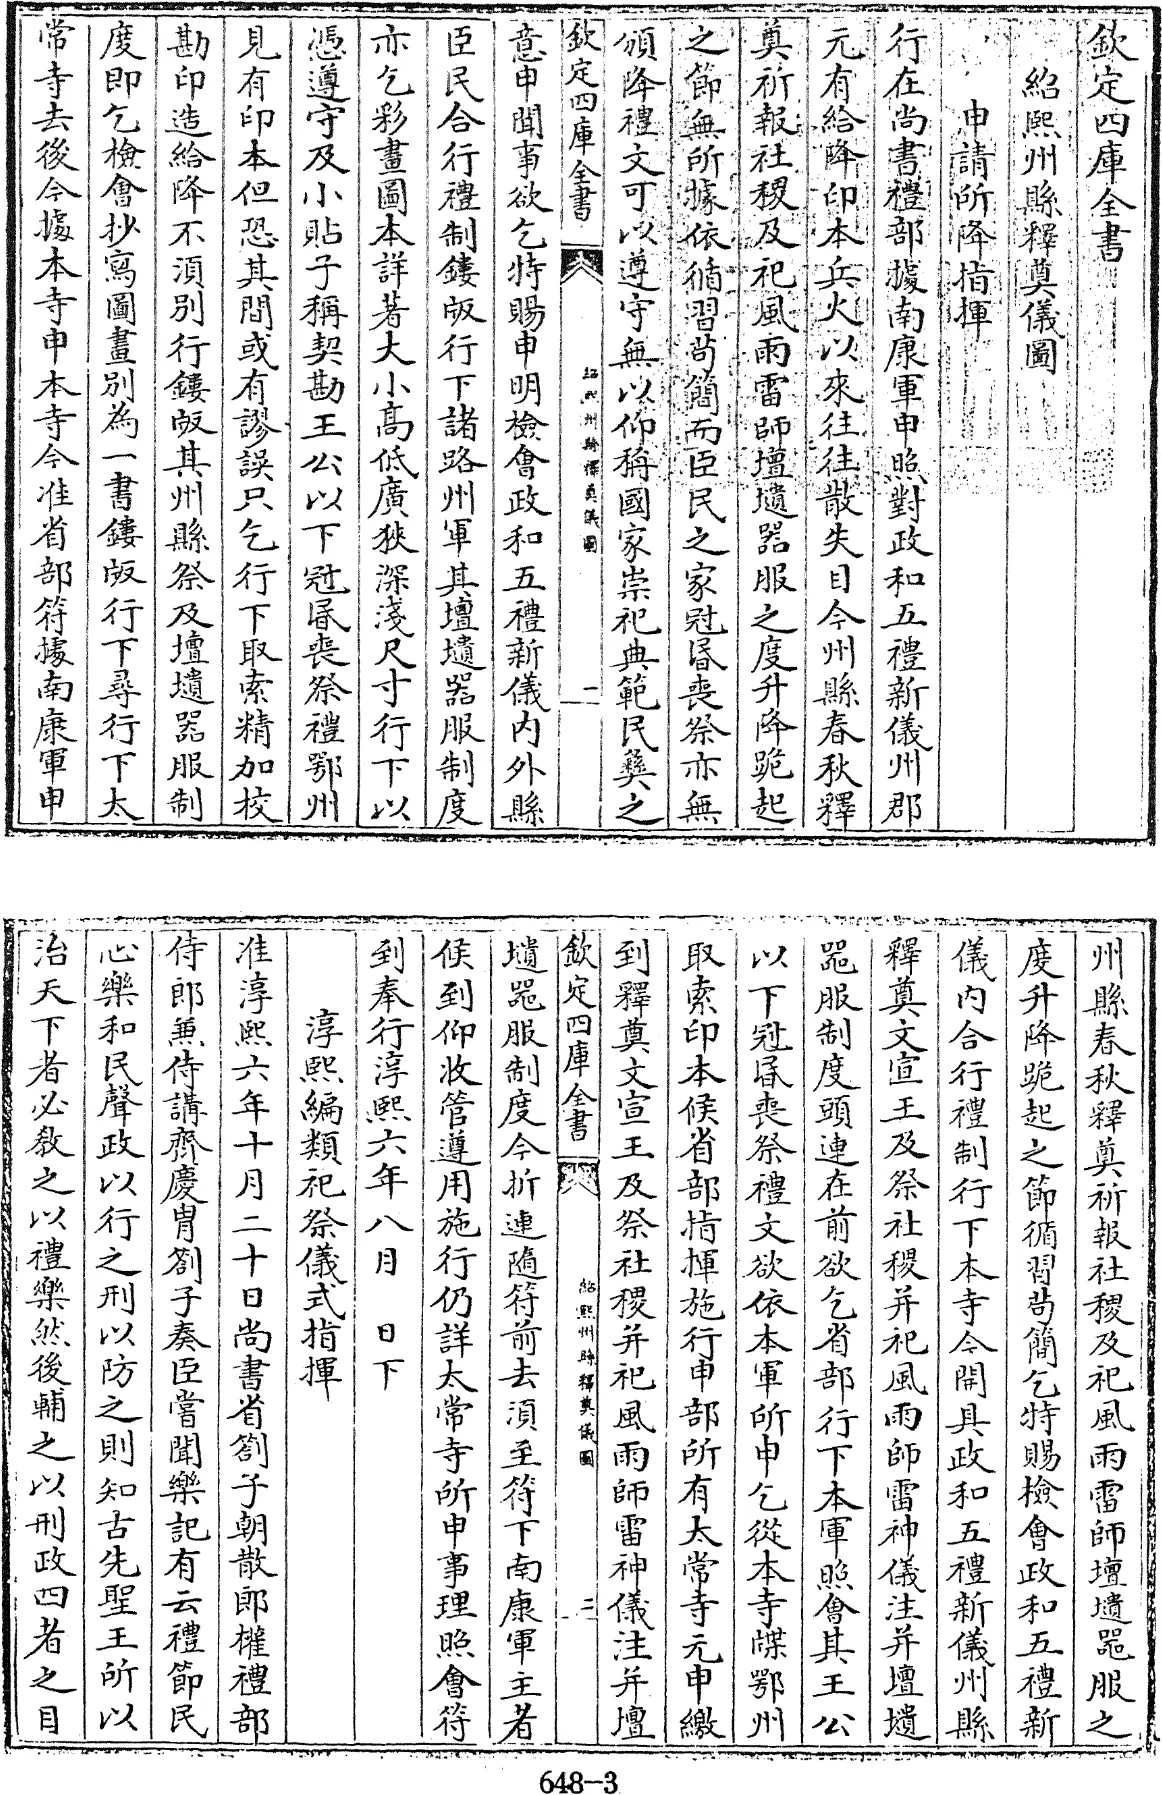 欽定四庫全書
紹熙州縣釋奠儀圖
申請所降指揮
行在尚書禮部據南康軍申照對政和五禮新儀州郡
元有給降印本兵火以來往往散失目今州縣春秋釋
奠祈報社稷及祀風雨雷師壇壝器服之度升降跪起
之節無所據依循習苟簡而臣民之家冠昬喪祭亦無
頒降禮文可以遵守無以仰稱國家崇祀典範民彝之
欽定四庫全書
紹熙州縣釋奠儀圖
一
意申聞事欲乞特賜申明檢會政和五禮新儀内外縣
臣民合行禮制鏤版行下諸路州軍其壇壝器服制度
亦乞彩畫圖本詳著大小高低廣狹深淺尺寸行下以
憑遵守及小貼子稱契勘王公以下冠昬喪祭禮鄂州
見有印本但恐其間或有謬誤只乞行下取索精加校
勘印造給降不湏別行鏤版其州縣祭及壇壝器服制
度即乞檢會抄寫圖畫別為一書鏤版行下尋行下太
常寺去後今據本寺申本寺今准省部符據南康軍申
州縣春秋釋奠祈報社稷及祀風雨雷師壇壝器服之
度升降跪起之節循習苟簡乞特賜檢會政和五禮新
儀内合行禮制行下本寺今開具政和五禮新儀州縣
釋奠文宣王及祭社稷并祀風雨師雷神儀注并壇壝
器服制度頭連在前欲乞省部行下本軍照會其王公
以下冠昬喪祭禮文欲依本軍所申乞從本寺牒鄂州
取索印本候省部指揮施行申部所有太常寺元申繳
到釋奠文宣王及祭社稷并祀風雨師雷神儀注并壇
欽定四庫全書
紹熙州縣釋奠儀圖
二
壝器服制度今折連隨符前去湏至符下南康軍主者
候到仰收管遵用施行仍詳太常寺所申事理照會符
到奉行淳熙六年八月　日下
淳熙編類祀祭儀式指揮
准淳熙六年十月二十日尚書省劄子朝散郎權禮部
侍郎兼侍講齊慶胄劄子奏臣嘗聞樂記有云禮節民
心樂和民聲政以行之刑以防之則知古先聖王所以
治天下者必敎之以禮樂然後輔之以刑政四者之目
648-3